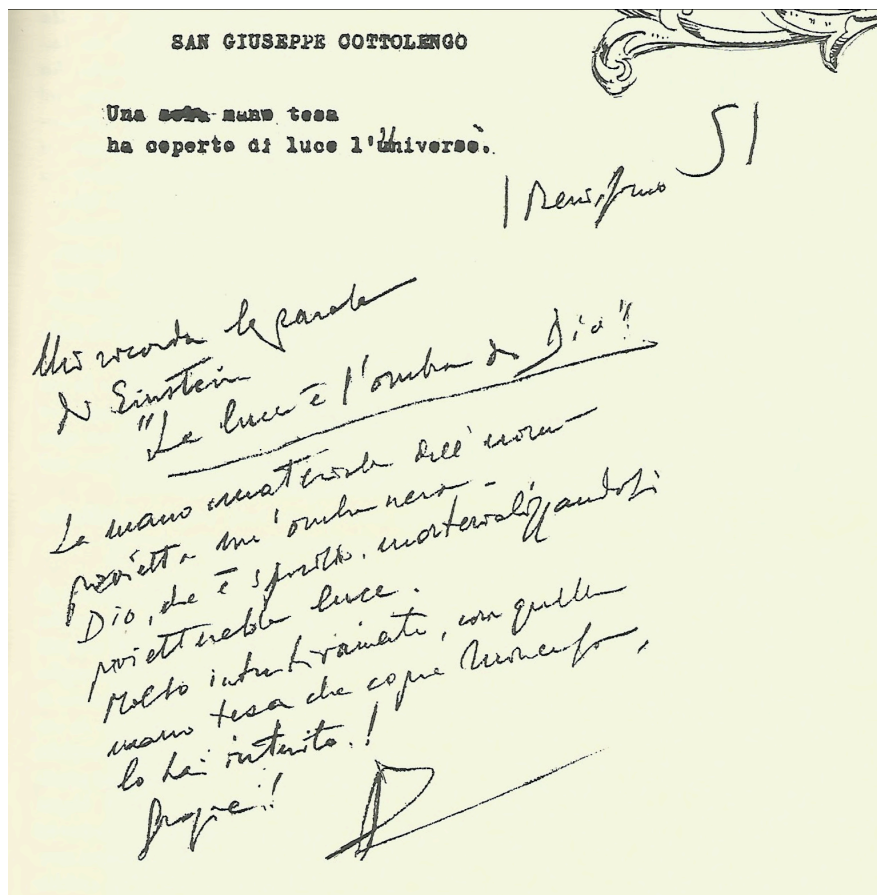 SAN GIUSEPPE COTTOLENGO
Una mano tesa
ha coperto di luce l'Universo.
SI
Mi ricorda le parole
di Einstein
"La luce è l'ombra di Dio"!
La mano materiale dell'uomo
proietta un'ombra nera -
Dio, che è spirito, materializzandosi
proietterebbe luce.
Molto intuitivamente, con quella
mano tesa che copre
lo hai intuito!